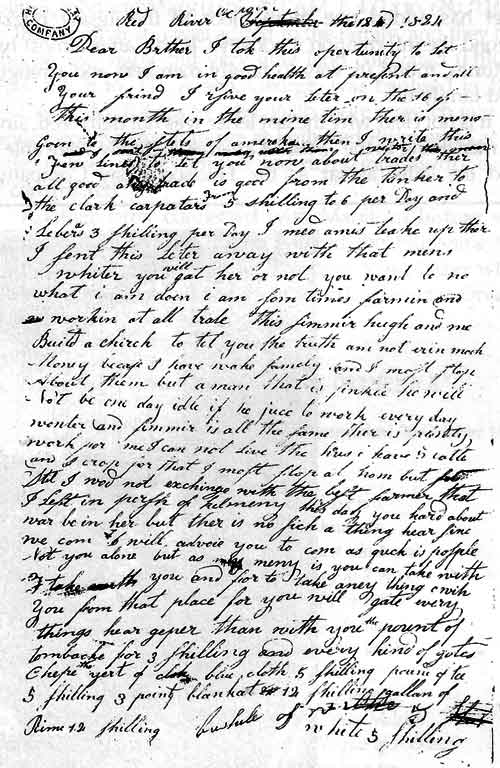 COMPANY
Red River the 18 1824
Dear Brther I tok this oportunity to let
You now I am in good health at present and all
Your frind I rsive your Leter on the 16 of
this month in the mene tim ther is meno
Goen to the stets of amereke then I write this
Few lines to let you now about trades ther
all good trade is good from the tinker to
the clark carpatars from 5 shilling to 6 per Day and
Leberś 3 shilling per Day I med amis teake up ther
I sent this Leter away with that mens
Whiter you will gat her or not you want to no
what i am doen i am som times farmin and
workin at all trade this simmir hugh and me
Build a chirch to tel you the truth am not erin moch
Money becase I have wake famely and I most stope
About them but a man that is sinkil he will
Not be one day idle if he juce to work every day
wenter and simmir is all the same ther is plenty
work for me I can not live the hus i have 5 catle
and I crop for that I most stop at hom but
stil I wod not exchinge with the best farmer that
I left in perish of relmeny this day you hard about
war be in her but ther is no sich a thing hear sine
we com I will advoie you to com as quck is posple
Not you alone but as meny is you can take with
you and for to take anery thing with
You from that place for you will gate every
things hear geper than with you the pount of
tombacke for 3 shilling and every kind of gotes
Chepe the yert of blue cloth 5 shilling pount of tee
5 shilling 3 point blanket 12 shilling gallan of
Rime 12 shilling bushile of white 5 shilling